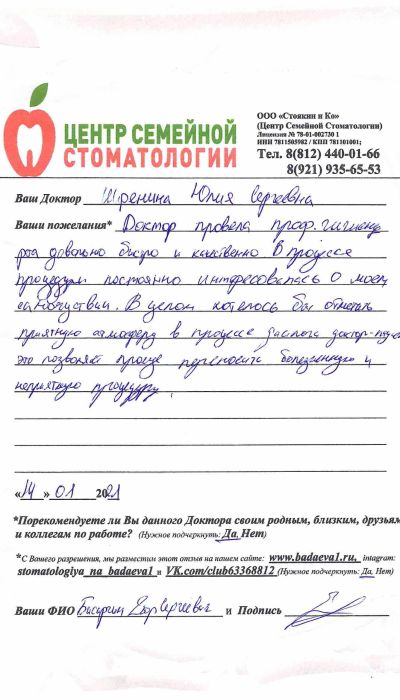 ЦЕНТР СЕМЕЙНОЙ
СТОМАТОЛОГИИ
ООО «Стоякин и Ко»
(Центр Семейной Стоматологии)
Лицензия № 78-01-002730 1
ИНН 7811505982 / КПП 781101001;
Тел. 8(812) 440-01-66
8(921) 935-65-53
Ваш Доктор Ширенина Юлия Сергеевна
Ваши пожелания* Доктор провела проф. гигиену
рта довольно быстро и качественно В процессе
процедуры постоянно интересовалась о моем
самочуствии. В целом хотелось бы отметить
приятную атмосферу в процессе диалога доктор-
это позволяет проще переносить болезненную и
неприятную процедуру.
«14» 01 2021
*Порекомендуете ли Вы данного Доктора своим родным, близким, друзьям
и коллегам по работе? (Нужное подчеркнуть: Да, Нет)
*С Вашего разрешения, мы разместим этот отзыв на нашем сайте: www.badaeva1.ru, intagram:
stomatologiya_na_badaeva1 и VK.com/club63368812 (Нужное подчеркнуть: Да, Нет)
Ваши ФИО Егор Сергеевич и Подпись